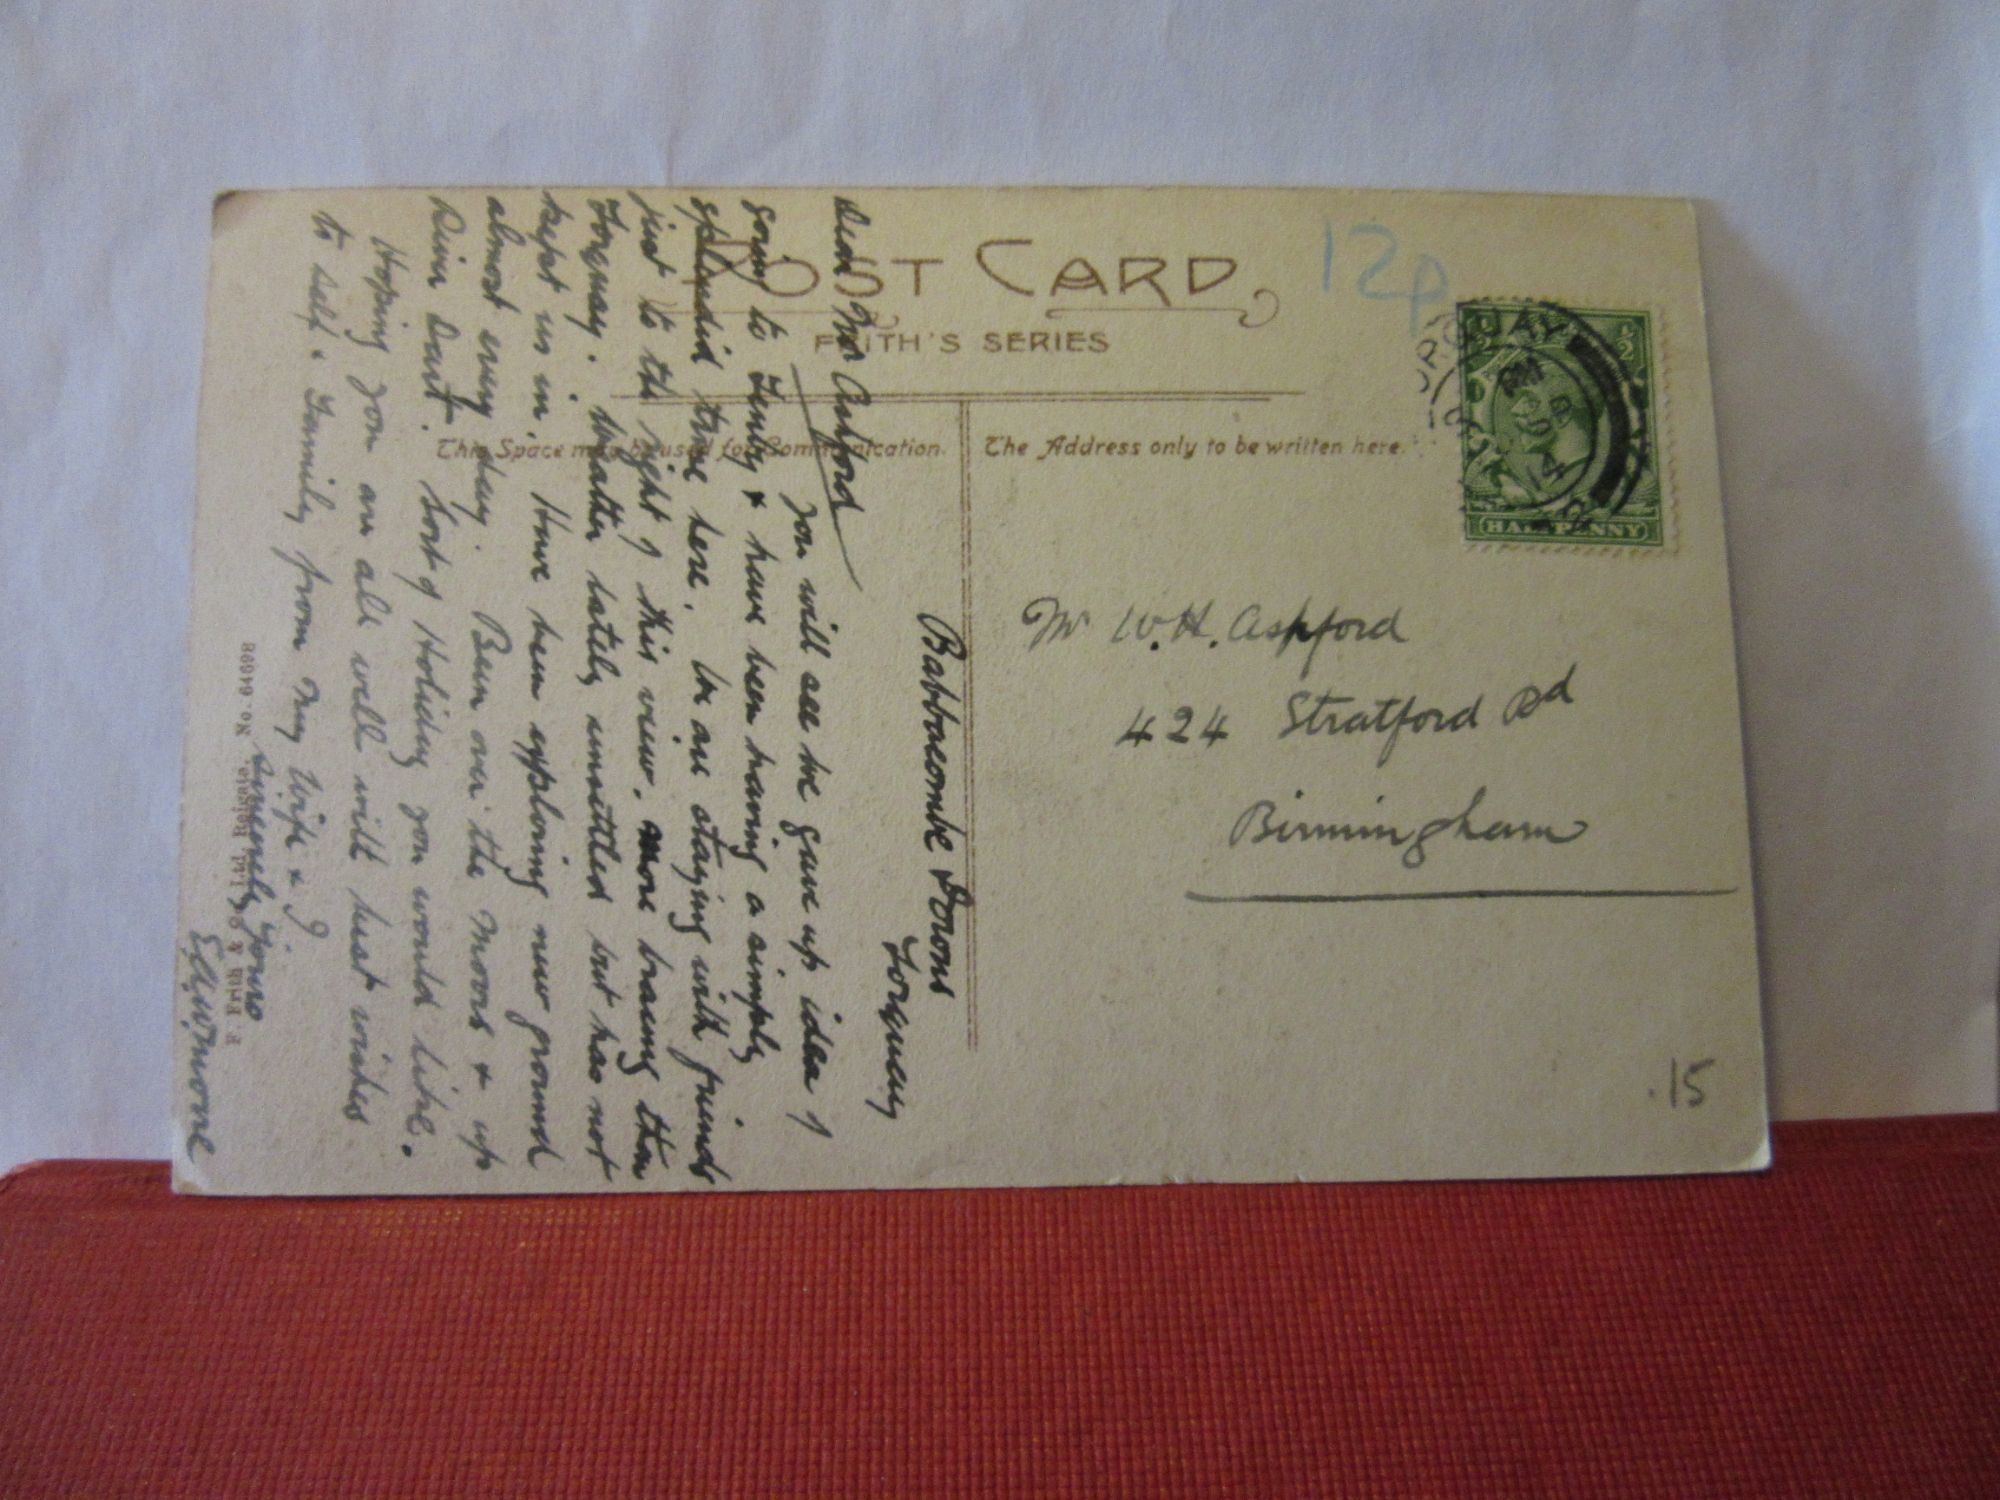 POST CARD
FRITH'S SERIES
This Space may be used for Communication.
The Address only to be written here.
12p
TORQUAY
HALFPENNY
Mr W.H. Ashford
424 Stratford Rd
Birmingham
.15
Babbacombe Downs
Torquay
Dear Mr Ashford
You will see we gave up idea of
going to Tenby & have been having a simply
splendid time here. We are staying with friends
just to the right of this view. More bracing than
Torquay. Weather lately unsettled but has not
kept us in. Have been exploring new ground
almost every day. Been over the Moors & up
River Dart. Sort of Holiday you would like.
Hoping you are all well with best wishes
to self & Family from my Wife & I
Sincerely Yours
F. Frith & Co. Ltd. Reigate. No. 6498